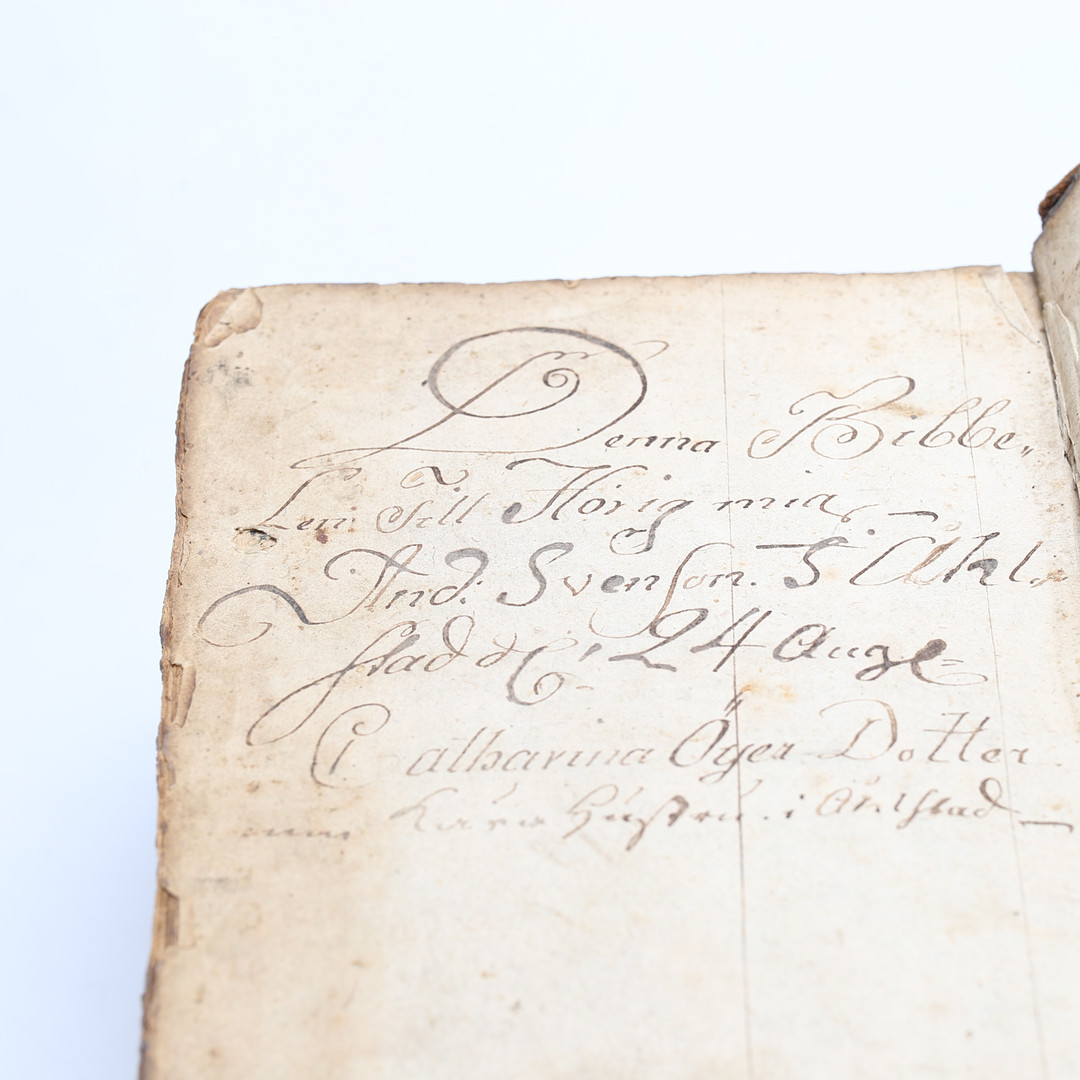 Denna Bibbe„
Lem Till Hörig mig
And: Svenson. I Åhl„
stadd d. 24 Augl
Catharina Öger Dotter
min Kära Hustru i Åhlstad